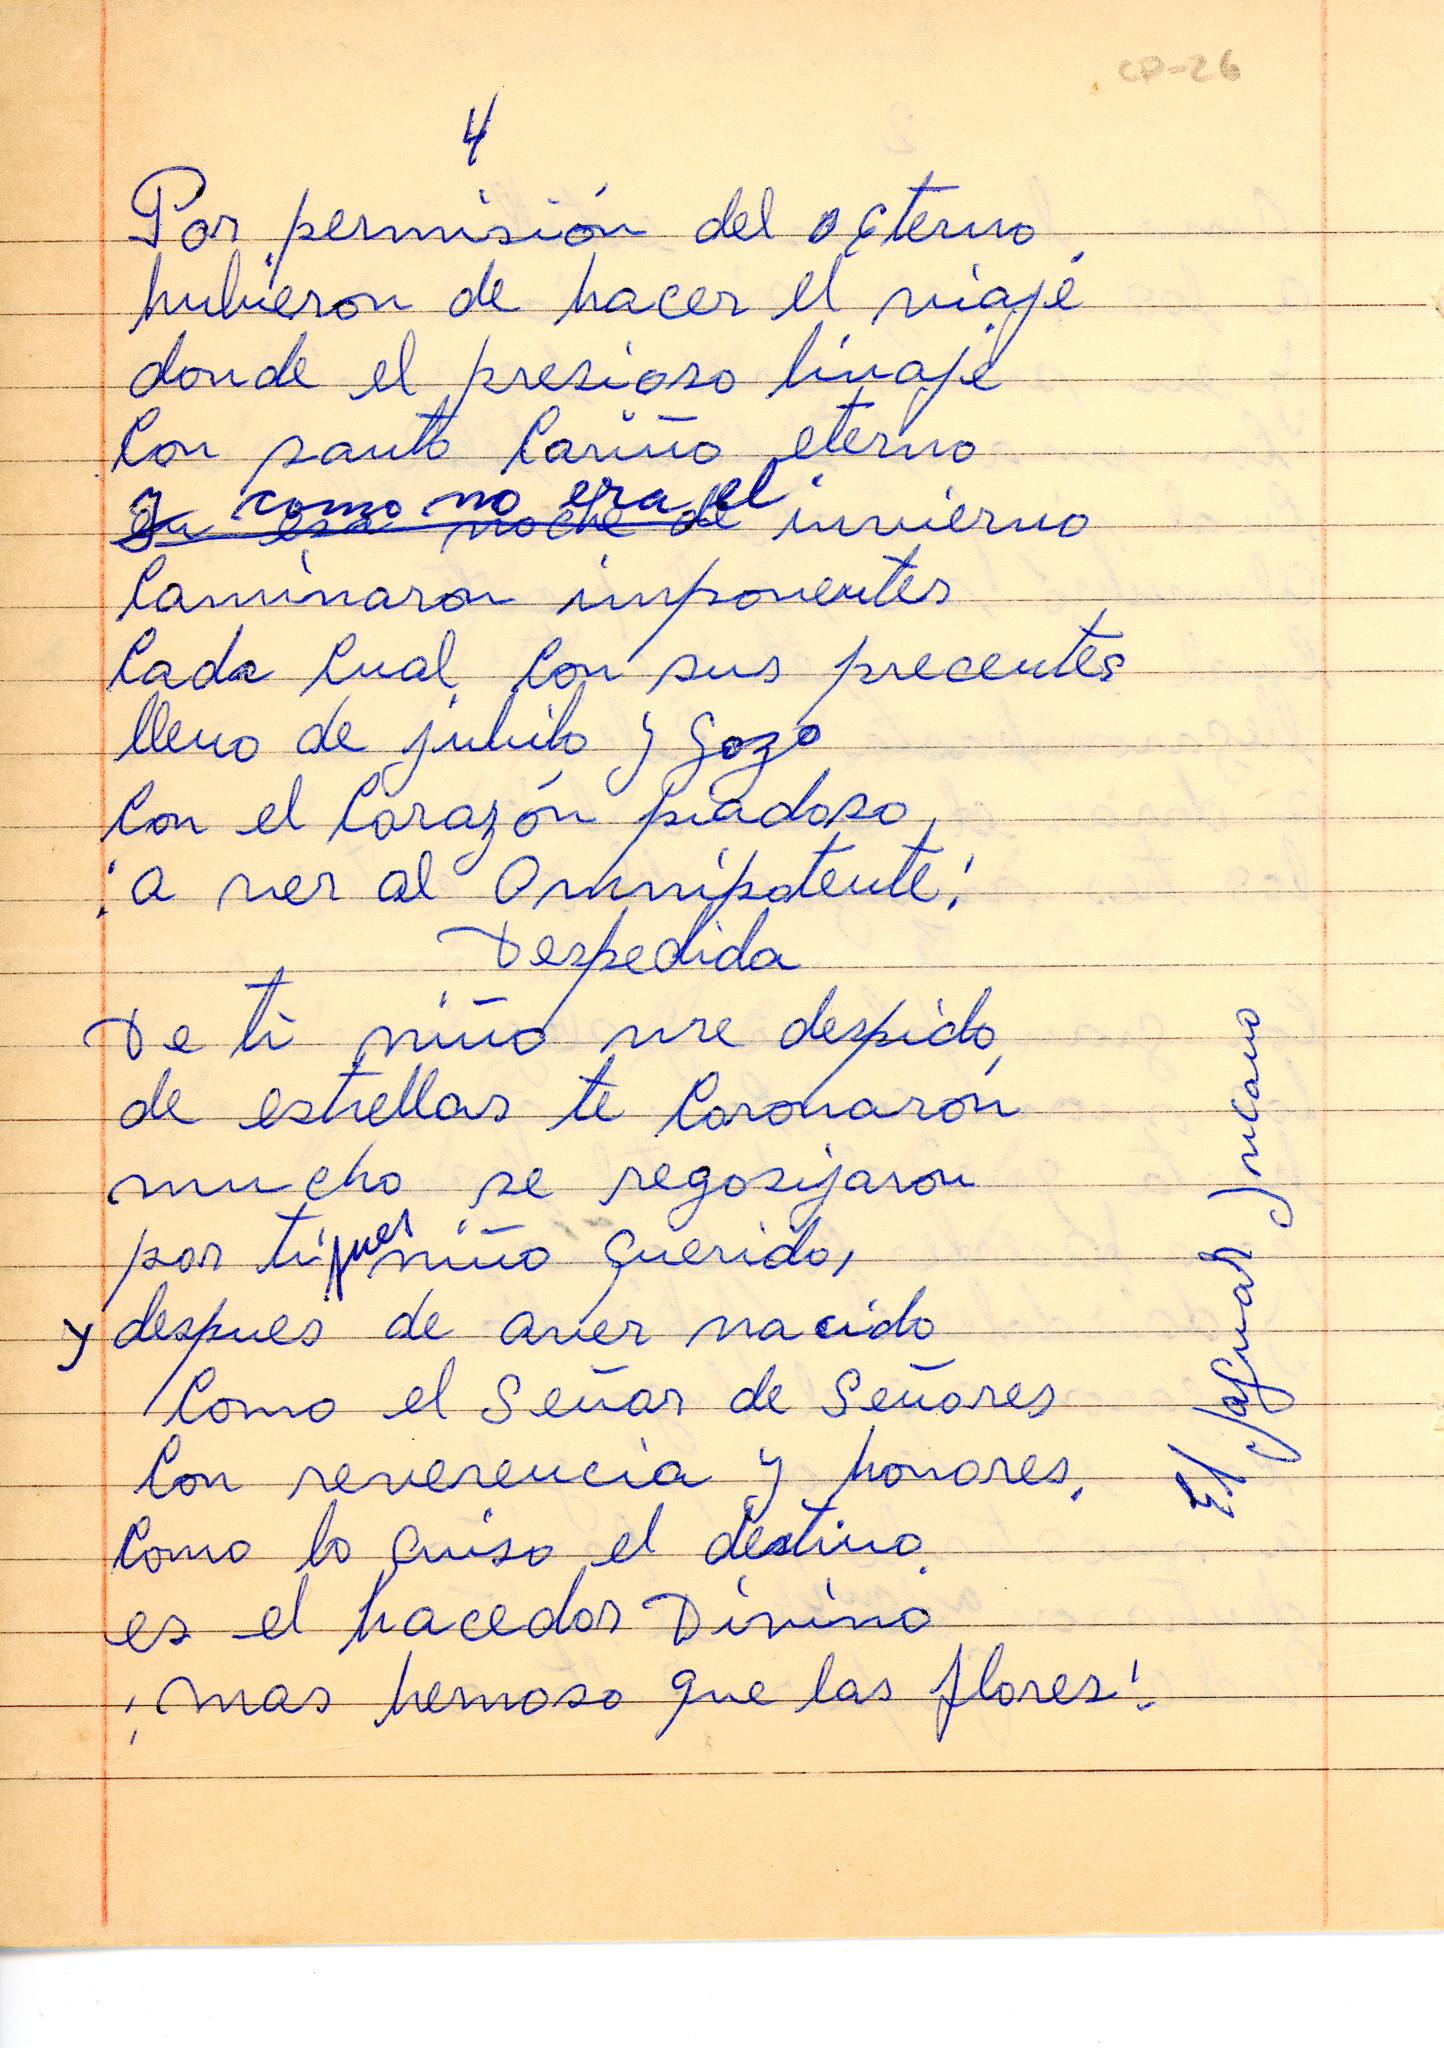 CP-26
4
Por permisión del eterno
hubieron de hacer el viaje
donde el presioso linaje
Con santo Cariño eterno
y como no era el
en esa noche de invierno
Caminaron imponentes
Cada Cual Con sus precentes
lleno de jubilo y gozo
Con el Corazón piadoso
¡a ver al Omnipotente!
Despedida
De ti niño me despido
de estrellas te Coronarón
mucho se regosijaron
por ti pues niño querido,
y despues de aver nacido
Como el Señor de Señores
Con reverencia y honores,
Como lo quiso el destino
es el hacedor Divino
¡mas hermoso que las flores!
El Jaguar Incano